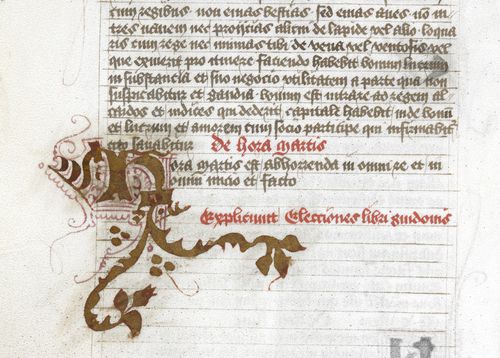 cum regibus non emas bestias sed emas aues nō in
tres nauem nec proficias de lapide vel alio loqua
ris cum rege nec minuas tibi de vena vel ventosis vel
que exiuerit pro itinere faciendo habebit bonum lucrum
in substantia et suo negocio vtilitatem a parte qua non
suspicabitur et gaudia bonum est intrare ad regem al
cardos et iudices qui dederit capitale habebit inde bonū
et lucrum et amorem cum socio participe qui infirmabit
cito sanabitur De hora martis
Hora martis est abhorrenda in omni re et in
omni inicio et facto
Expliciunt Elecciones libri guidonis